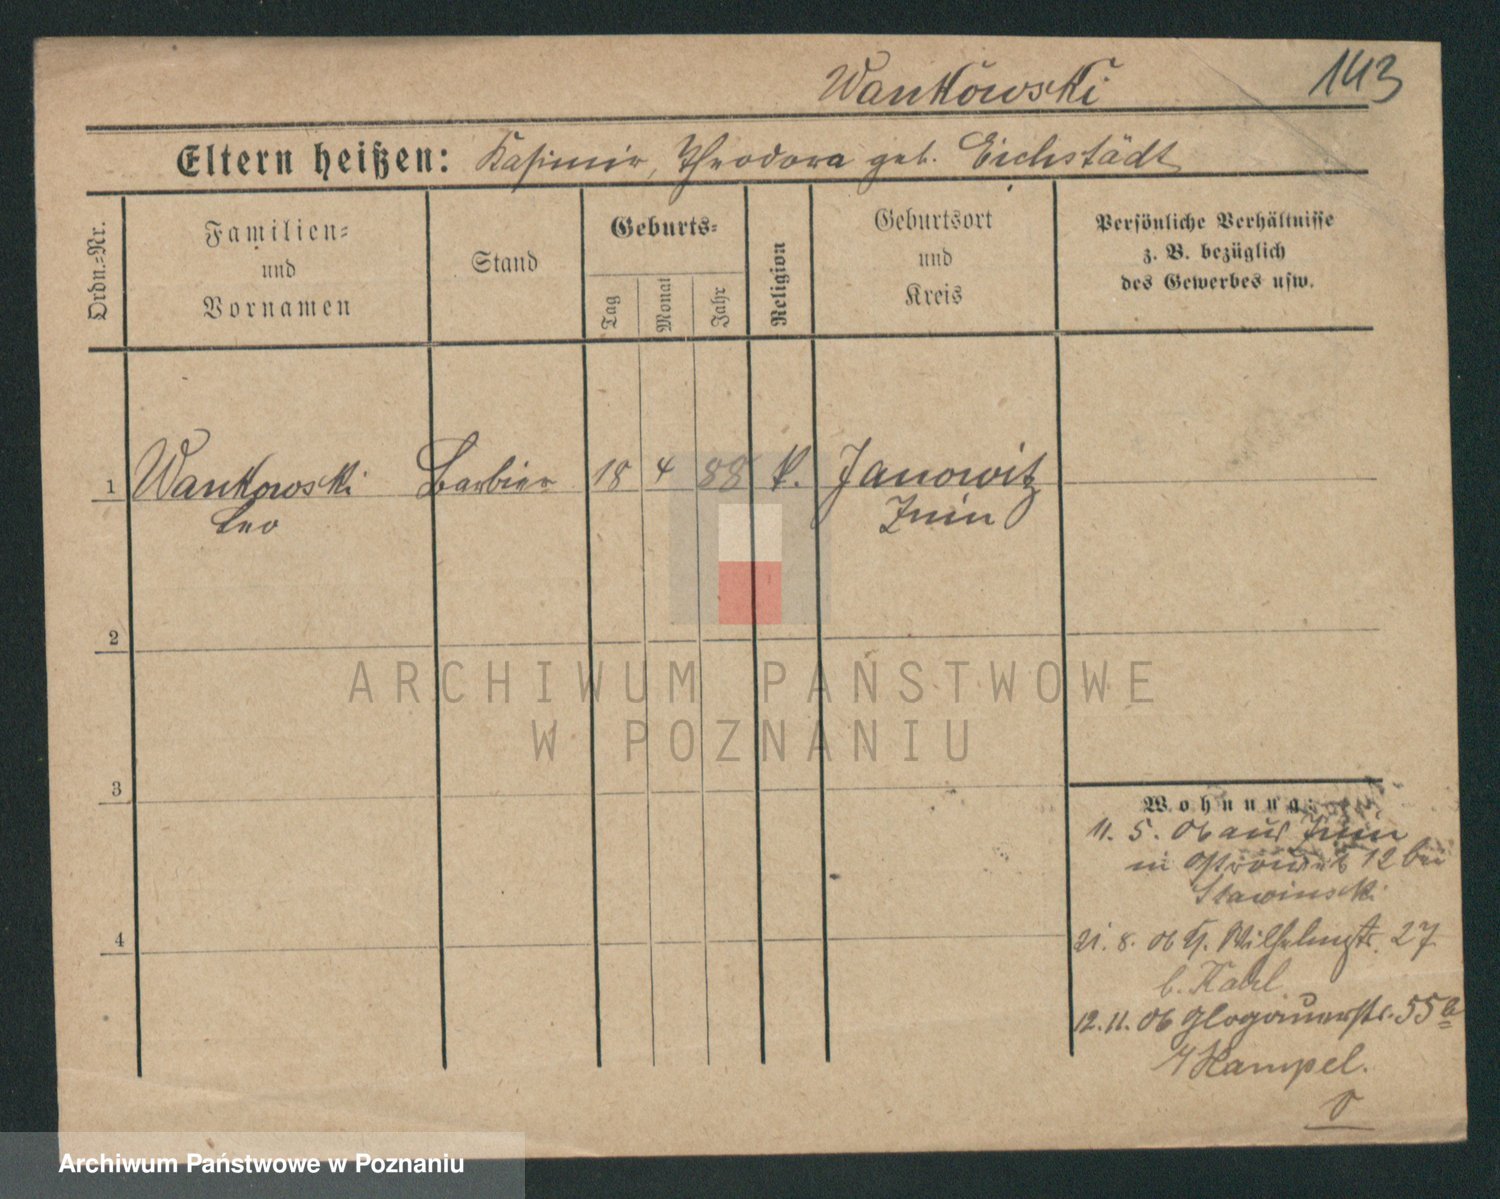 Wankowski
143
Eltern heißen: Kasimir, Theodora geb. Eichstädt
Ordn.-Nr.
Familien-
und
Vornamen
Stand
Geburts-
Tag
Monat
Jahr
Religion
Geburtsort
und
Kreis
Persönliche Verhältnisse
z. B. bezüglich
des Gewerbes usw.
1 Wankowski Barbier 18 4 88 k. Janowitz
Leo Znin
2
ARCHIWUM PAŃSTWOWE
W POZNANIU
3
Wohnung:
11. 5. 06 aus Znin
in 12 bei
Stawinski
21. 8. 06 Wilhelmstr. 27
b. Kahl
12. 11. 06 Glogauerstr. 55a
Hampel.
4
Archiwum Państwowe w Poznaniu